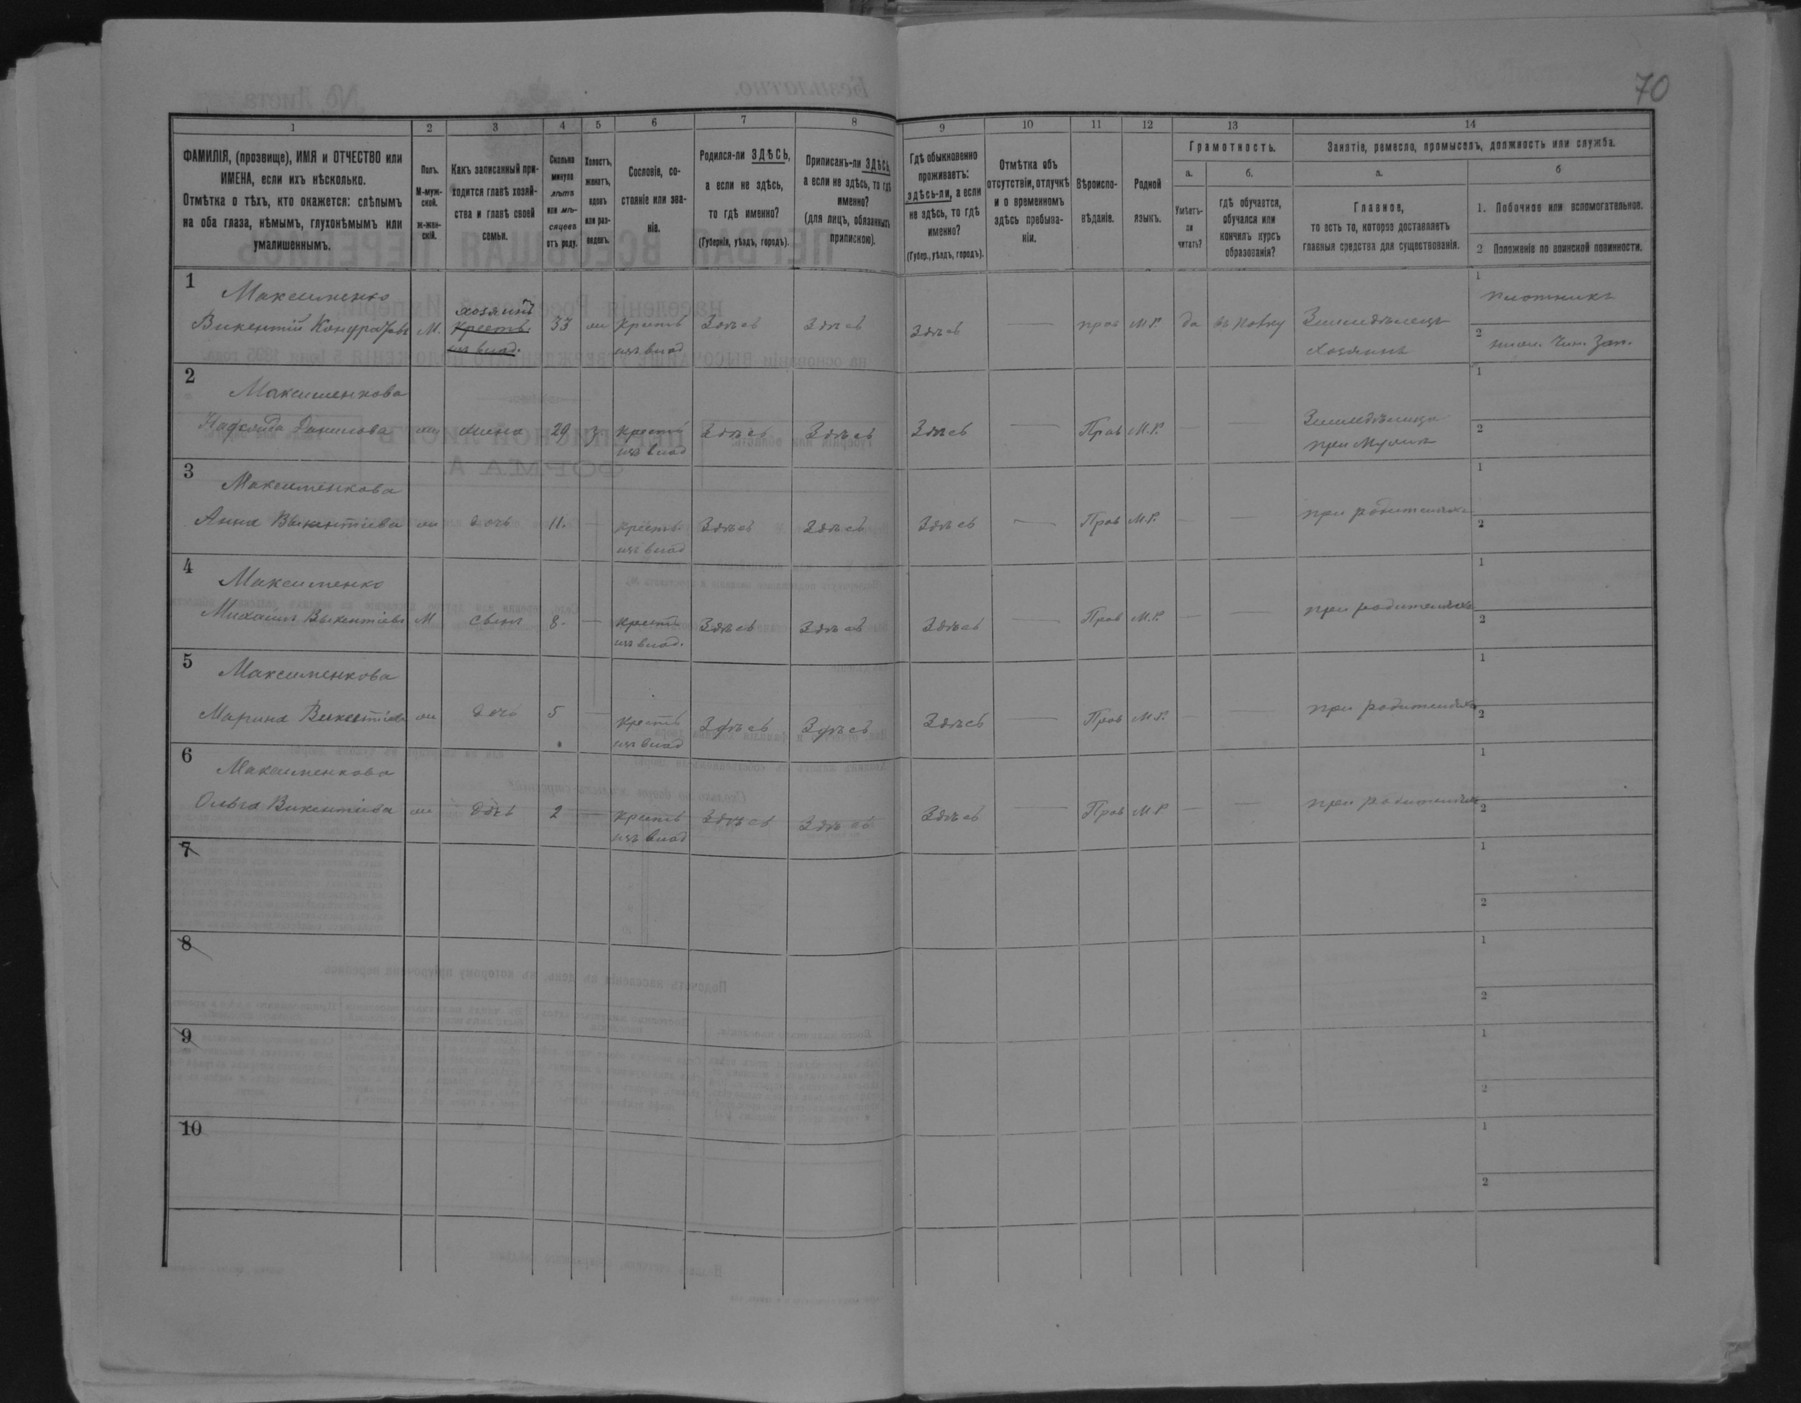 70
1 2 3 4 5 6 7 8 9 10 11 12 13 14
ФАМИЛІЯ, (прозвище), ИМЯ и ОТЧЕСТВО или
ИМЕНА, если ихъ нѣсколько.
Отмѣтка о тѣхъ, кто окажется: слѣпымъ
на оба глаза, нѣмымъ, глухонѣмымъ или
умалишеннымъ.
Полъ.
М-муж-
ской.
Ж-жен-
скій.
Какъ записанный при-
ходится главѣ хозяй-
ства и главѣ своей
семьи.
Сколько
минуло
лѣтъ
или мѣ-
сяцевъ
отъ роду.
Холостъ,
женатъ,
вдовъ
или раз-
веденъ.
Сословіе, со-
стояніе или зва-
ніе.
Родился-ли ЗДѢСЬ,
а если не здѣсь,
то гдѣ именно?
(Губернія, уѣздъ, городъ).
Приписанъ-ли ЗДѢСЬ,
а если не здѣсь, то гдѣ
именно?
(для лицъ, обязанныхъ
припискою).
Гдѣ обыкновенно
проживаетъ:
здѣсь-ли, а если
не здѣсь, то гдѣ
именно?
(Губер., уѣздъ, городъ).
Отмѣтка объ
отсутствіи, отлучкѣ
и о временномъ
здѣсь пребыва-
ніи.
Вѣроиспо-
вѣданіе.
Родной
языкъ.
Грамотность.
а.
Умѣетъ-
ли
читать?
б.
гдѣ обучается,
обучался или
кончилъ курсъ
образованія?
Занятіе, ремесло, промыселъ, должность или служба.
а.
Главное,
то есть то, которое доставляетъ
главныя средства для существованія.
б
1. Побочное или вспомогательное.
2 Положеніе по воинской повинности.
1
Максименко
Викентій Кондратовъ М. хозяинъ
Крестъ.
изъ влад.
33 ж Крестъ
изъ влад
Здѣсь Здѣсь Здѣсь — прав М.Р. да
Земледѣлецъ
Хозяинъ
1 плотникъ
2
2
Максименкова
жена 29 Крестъ
изъ влад
Здѣсь Здѣсь Здѣсь — Прав М.Р. — —
Земледѣлица
при мужѣ
1
2
3
Максименкова
Анна Викентіева ж дочь 11. — Крестъ
изъ влад
Здѣсь Здѣсь Здѣсь — Прав М.Р. — —
при родителяхъ
1
2
4
Максименко
Михаилъ Викентіевъ М сынъ 8. — Крестъ
изъ влад.
Здѣсь Здѣсь Здѣсь — Прав М.Р. — —
при родителяхъ
1
2
5
Максименкова
Марина Викентіева ж дочь 5 — Крестъ
изъ влад
Здѣсь Здѣсь Здѣсь — Прав М.Р. — —
при родителяхъ
1
2
6
Максименкова
Ольга Викентіева ж дочь 2 — Крестъ
изъ влад
Здѣсь Здѣсь Здѣсь — Прав М.Р. — —
при родителяхъ
1
2
7
1
2
8
1
2
9
1
2
10
1
2